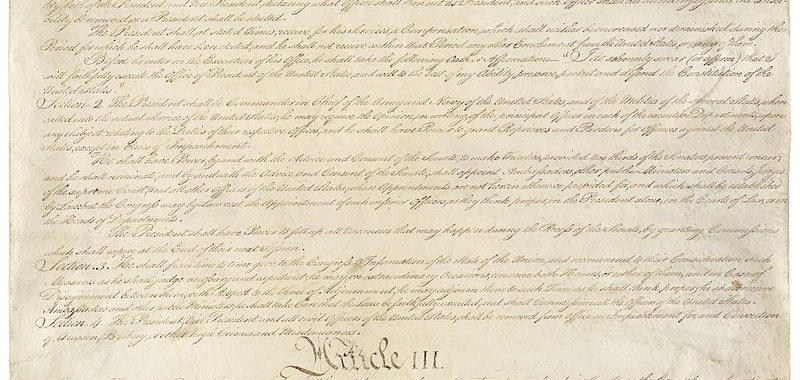 bility, both of the President and Vice President, declaring what Officer shall then act as President, and such Officer shall act accordingly, until the Disa-
bility be removed, or a President shall be elected.
The President shall, at stated Times, receive for his Services, a Compensation, which shall neither be encreased nor diminished during the
Period for which he shall have been elected, and he shall not receive within that Period any other Emolument from the United States, or any of them.
Before he enter on the Execution of his Office, he shall take the following Oath or Affirmation:— "I do solemnly swear (or affirm) that I
will faithfully execute the Office of President of the United States, and will to the best of my Ability, preserve, protect and defend the Constitution of the
United States."
Section. 2. The President shall be Commander in Chief of the Army and Navy of the United States, and of the Militia of the several States, when
called into the actual Service of the United States; he may require the Opinion, in writing, of the principal Officer in each of the executive Departments, upon
any Subject relating to the Duties of their respective Offices, and he shall have Power to grant Reprieves and Pardons for Offences against the United
States, except in Cases of Impeachment.
He shall have Power, by and with the Advice and Consent of the Senate, to make Treaties, provided two thirds of the Senators present concur;
and he shall nominate, and by and with the Advice and Consent of the Senate, shall appoint Ambassadors, other public Ministers and Consuls, Judges
of the supreme Court, and all other Officers of the United States, whose Appointments are not herein otherwise provided for, and which shall be established
by Law: but the Congress may by Law vest the Appointment of such inferior Officers, as they think proper, in the President alone, in the Courts of Law, or in
the Heads of Departments.
The President shall have Power to fill up all Vacancies that may happen during the Recess of the Senate, by granting Commissions
which shall expire at the End of their next Session.
Section. 3. He shall from time to time give to the Congress Information of the State of the Union, and recommend to their Consideration such
Measures as he shall judge necessary and expedient; he may, on extraordinary Occasions, convene both Houses, or either of them, and in Case of
Disagreement between them, with Respect to the Time of Adjournment, he may adjourn them to such Time as he shall think proper; he shall receive
Ambassadors and other public Ministers; he shall take Care that the Laws be faithfully executed, and shall Commission all the Officers of the United States.
Section. 4. The President, Vice President and all civil Officers of the United States, shall be removed from Office on Impeachment for, and Conviction
of, Treason, Bribery, or other high Crimes and Misdemeanors.
Article III.